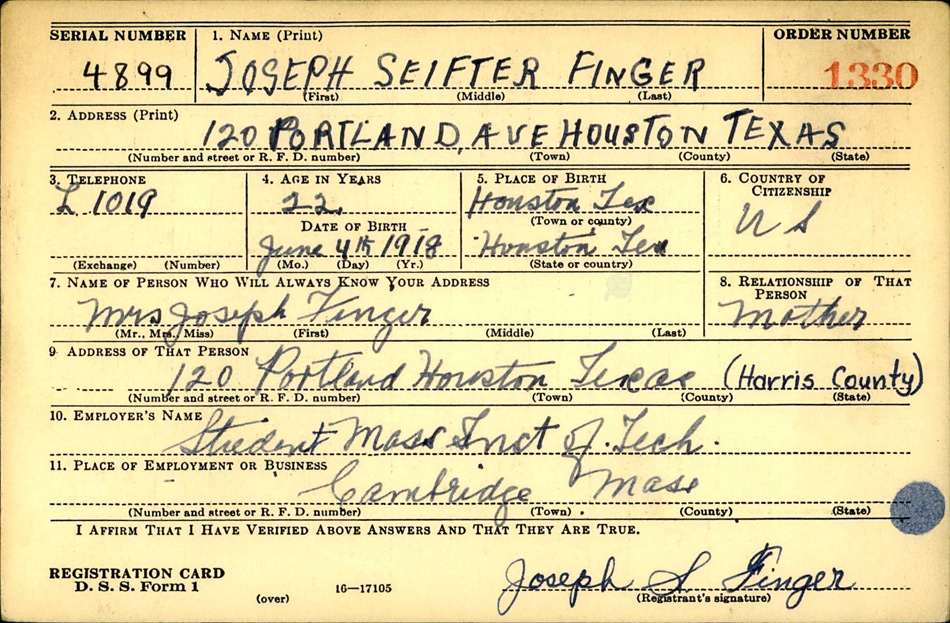 SERIAL NUMBER 1. NAME (Print) ORDER NUMBER
4899 JOSEPH SEIFTER FINGER 1330
(First) (Middle) (Last)
2. ADDRESS (Print)
120 PORTLAND, AVE HOUSTON TEXAS
(Number and street or R. F. D. number) (Town) (County) (State)
3. TELEPHONE 4. AGE IN YEARS 5. PLACE OF BIRTH 6. COUNTRY OF CITIZENSHIP
L 1019 22 Houston Tex U S
(Town or county)
DATE OF BIRTH
June 4th 1918 Houston Tex
(Exchange) (Number) (Mo.) (Day) (Yr.) (State or country)
7. NAME OF PERSON WHO WILL ALWAYS KNOW YOUR ADDRESS 8. RELATIONSHIP OF THAT PERSON
Mrs Joseph Finger Mother
(Mr., Mrs., Miss) (First) (Middle) (Last)
9. ADDRESS OF THAT PERSON
120 Portland Houston Texas (Harris County)
(Number and street or R. F. D. number) (Town) (County) (State)
10. EMPLOYER'S NAME
Student Mass Inst of. Tech.
11. PLACE OF EMPLOYMENT OR BUSINESS
Cambridge Mass
(Number and street or R. F. D. number) (Town) (County) (State)
I AFFIRM THAT I HAVE VERIFIED ABOVE ANSWERS AND THAT THEY ARE TRUE.
REGISTRATION CARD
D. S. S. Form 1 16—17105 Joseph S. Finger
(over) (Registrant's signature)